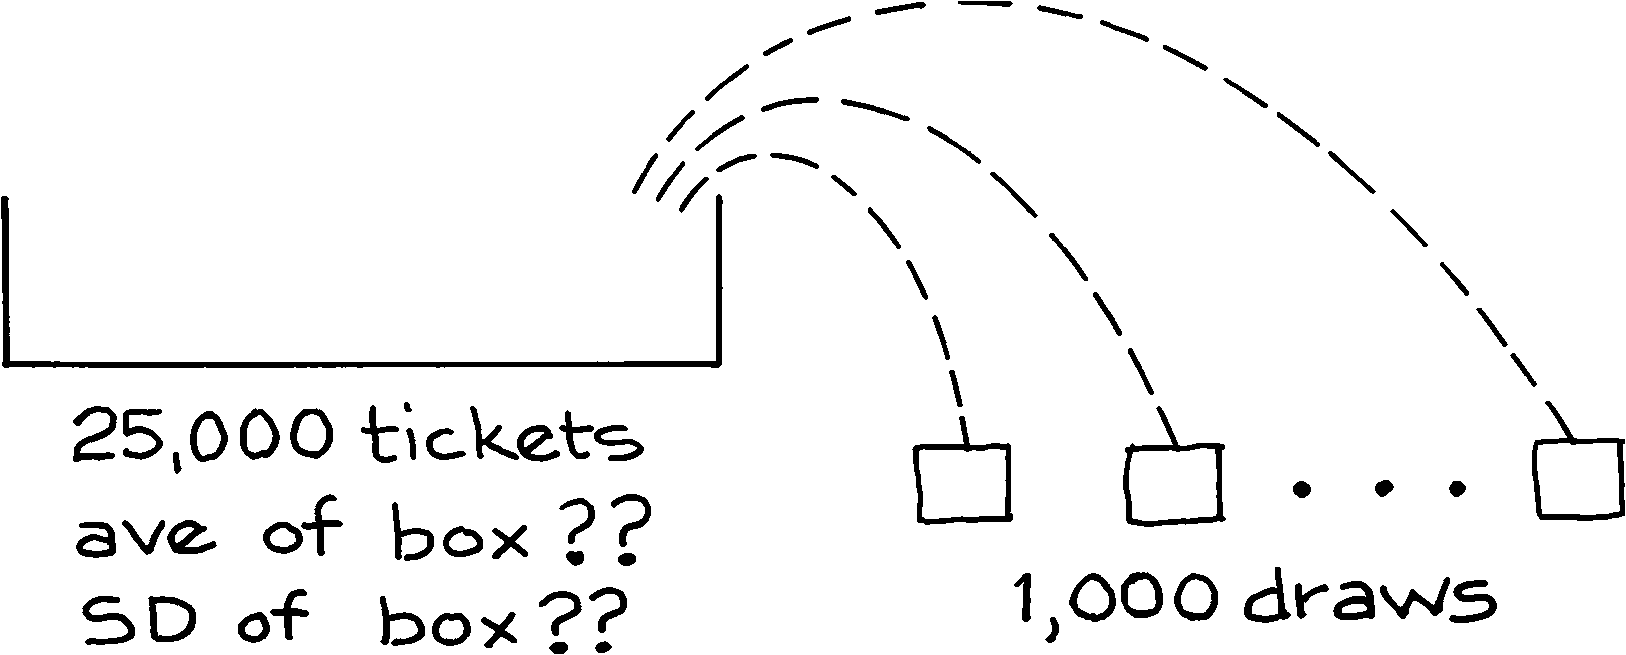 25,000 tickets
ave of box ??
SD of box ??
1,000 draws